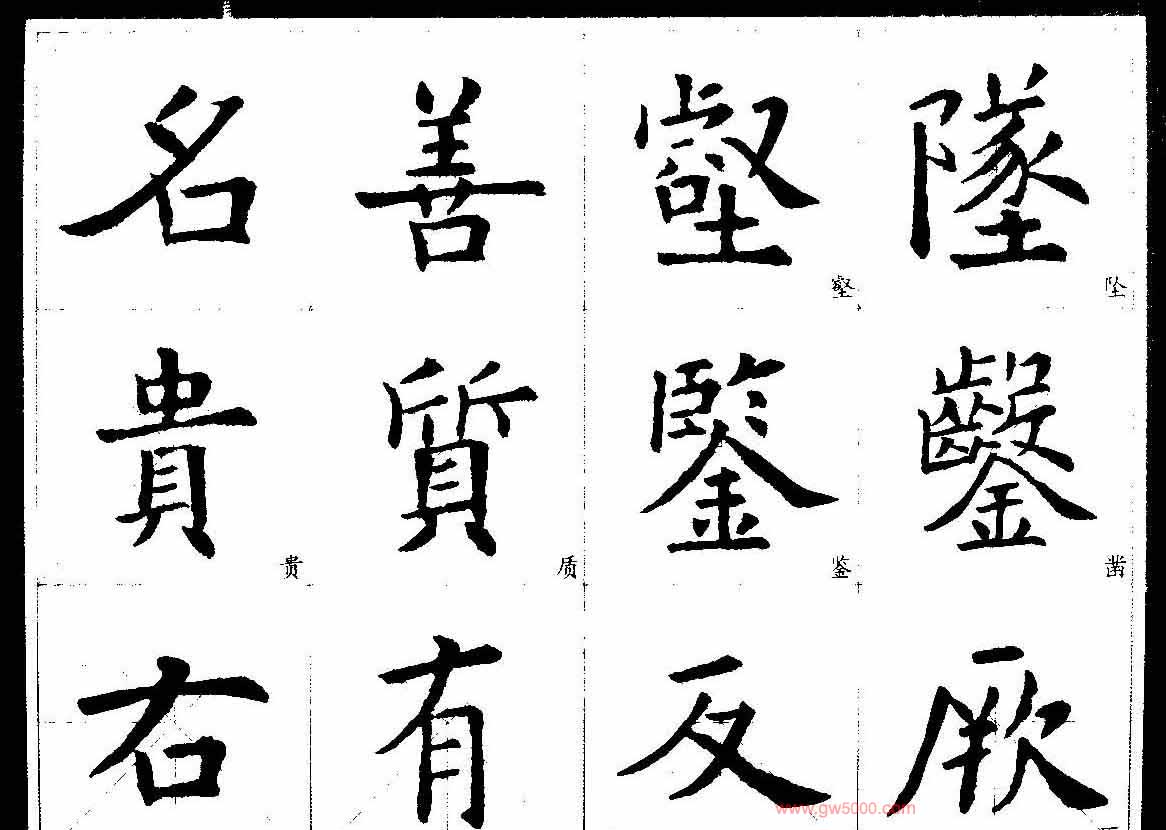 名 善 壑 墜
壑 坠
貴 質 鑒 鑿
贵 质 鉴 凿
右 有 反 厥
www.gw5000.com